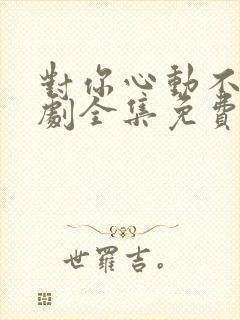 對你心動不
劇全集免費
世羅吉。